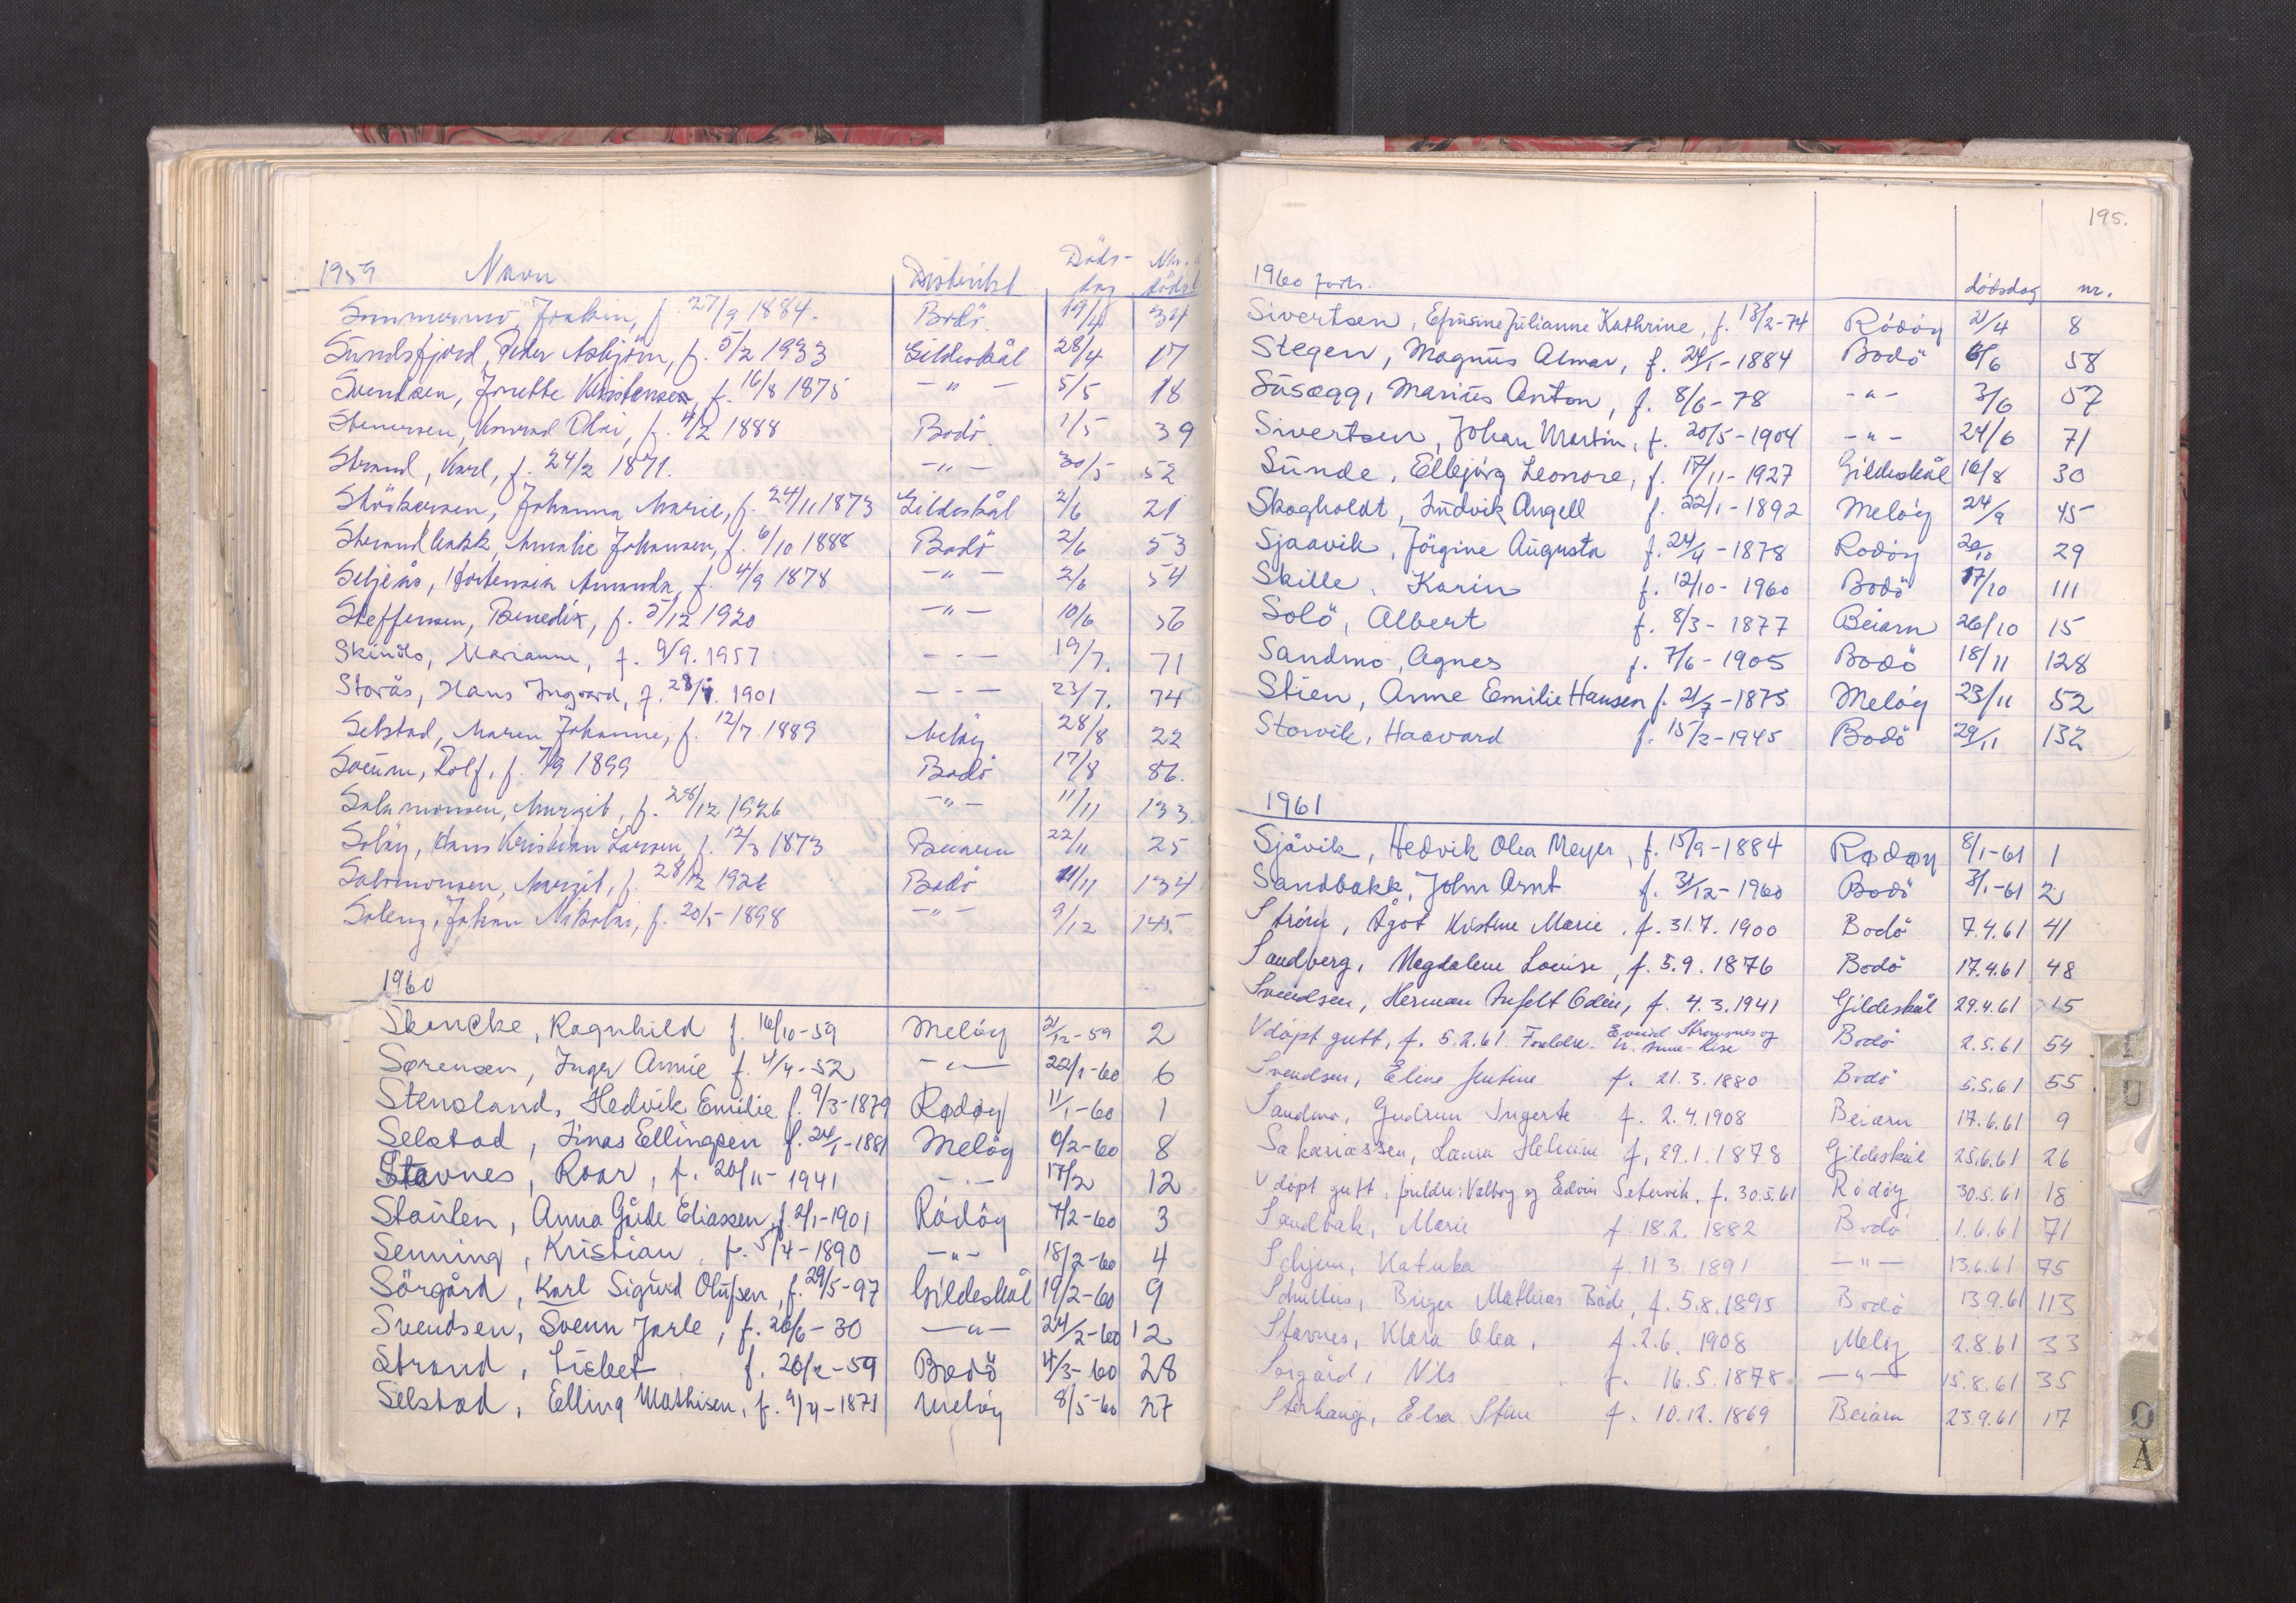 1959 Navn Distrikt Döds-dag Nr. i dödsl
Sommermo, Joakim, f. 27/9 1884. Bodö 19/4 34
Sundsfjord, Peder Asbjörn, f. 5/2 1933 Gildeskål 28/4 17
Svendsen, Jonette Kristensen, f. 16/8 1875 -"- 5/5 18
Stenersen, Konrad Olai, f. 4/2 1888 Bodö 1/5 39
Strand, Karl, f. 24/2 1871. -"- 30/5 52
Störkersen, Johanna Marie, f. 24/11 1873 Gildeskål 2/6 21
Strandbakk, Amalie Johansen, f. 6/10 1888 Bodö 2/6 53
Seljeås, Hortensia Amanda, f. 4/9 1878 -"- 2/6 54
Steffensen, Benedix, f. 5/12 1920 -"- 10/6 56
Skindlo, Marianne, f. 9/9. 1957 -"- 19/7. 71
Storås, Hans Ingvard, f. 28/1. 1901 -"- 23/7. 74
Selstad, Maren Johanne, f. 12/7 1889 Melöy 28/8 22
Sveum, Rolf, f. 7/9 1899 Bodö 17/8 86.
Salamonsen, Margit, f. 28/12 1926 -"- 11/11 133
Solöy, Hans Kristian Larsen, f. 12/3 1873 Beiarn 22/11 25
Salomonsen, Margit, f. 28/12 1926 Bodö 11/11 134
Soleng, Johan Nikolai, f. 20/5 1898 -"- 9/12 145
1960
Skoncke, Ragnhild f. 16/10-59 Melöy 21/12-59 2
Sørensen, Inger Annie f. 4/4-52 -"- 22/1-60 6
Stensland, Hedvik Emilie f. 9/3-1879 Rødøy 11/1-60 1
Selstad, Jinas Ellingsen f. 24/1-1881 Meløy 6/2-60 8
Stavnes, Roar, f. 20/11-1941 -"- 17/2 12
Staulen, Anna Gude Eliassen, f. 2/1-1901 Rödöy 7/2-60 3
Senning, Kristian, f. 5/4-1890 -"- 18/2-60 4
Sörgård, Karl Sigurd Olufsen, f. 29/5-97 Gildeskål 19/2-60 9
Svendsen, Svenn Jarle, f. 26/6-30 -"- 24/2-60 12
Strand, Lisbet f. 26/2-59 Bodö 4/3-60 28
Selstad, Elling Mathisen, f. 9/4-1871 Melöy 8/5-60 27
195.
1960 forts. dödsdag nr.
Sivertsen, Efusine Julianne Kathrine, f. 13/2-74 Rödöy 21/4 8
Stegen, Magnus Almar, f. 24/1-1884 Bodö 6/6 58
Susægg, Marius Anton, f. 8/6-78 -"- 3/6 57
Sivertsen, Johan Martin, f. 20/5-1904 -"- 24/6 71
Sunde, Ellbjörg Leonore, f. 17/11-1927 Gildeskål 16/8 30
Skogholdt, Ludvik Angell f. 22/1-1892 Melöy 24/9 45
Sjaavik, Jörgine Augusta f. 24/4-1878 Rodöy 20/10 29
Skille, Karin f. 12/10-1960 Bodö 17/10 111
Solö, Albert f. 8/3-1877 Beiarn 26/10 15
Sandmo, Agnes f. 7/6-1905 Bodö 18/11 128
Stien, Anne Emilie Hansen f. 21/7-1875 Melöy 23/11 52
Storvik, Haavard f. 15/2-1945 Bodö 29/11 132
1961
Sjåvik, Hedvik Olea Meyer, f. 15/9-1884 Rødøy 8/1-61 1
Sandbakk, John Arnt f. 31/12-1960 Bodö 3/1-61 2
Ström, Ågot Kristine Marie, f. 31.7.1900 Bodö 7.4.61 41
Sandberg, Magdalene Lovise, f. 5.9.1876 Bodö 17.4.61 48
Svendsen, Herman Anfelt Odin, f. 4.3.1941 Gildeskål 29.4.61 15
Udöpt gutt, f. 5.2.61 Foreldre Eivind Stromsnes og h. Anne-Lise Bodö 2.5.61 54
Svendsen, Eline Jentine f. 21.3.1880 Bodö 5.5.61 55
Sandmo, Gudrun Ingerte f. 2.4.1908 Beiarn 17.6.61 9
Sakariassen, Laura Helmine f. 29.1.1878 Gildeskål 25.6.61 26
Udöpt gutt, foreldre: Valborg og Edvin Setervik, f. 30.5.61 Rödöy 30.5.61 18
Sandbak, Marie f. 18.2.1882 Bodö 1.6.61 71
Schjem, Katinka f. 11.3.1891 -"- 13.6.61 75
Schultus, Birger Mathias Bode, f. 5.8.1895 Bodö 13.9.61 113
Stavnes, Klara Olea, f. 2.6.1908 Meløy 2.8.61 33
Sorgård, Nils f. 16.5.1878 -"- 15.8.61 35
Storhaug, Elsa Stine f. 10.12.1869 Beiarn 23.9.61 17
U
Ø
Å